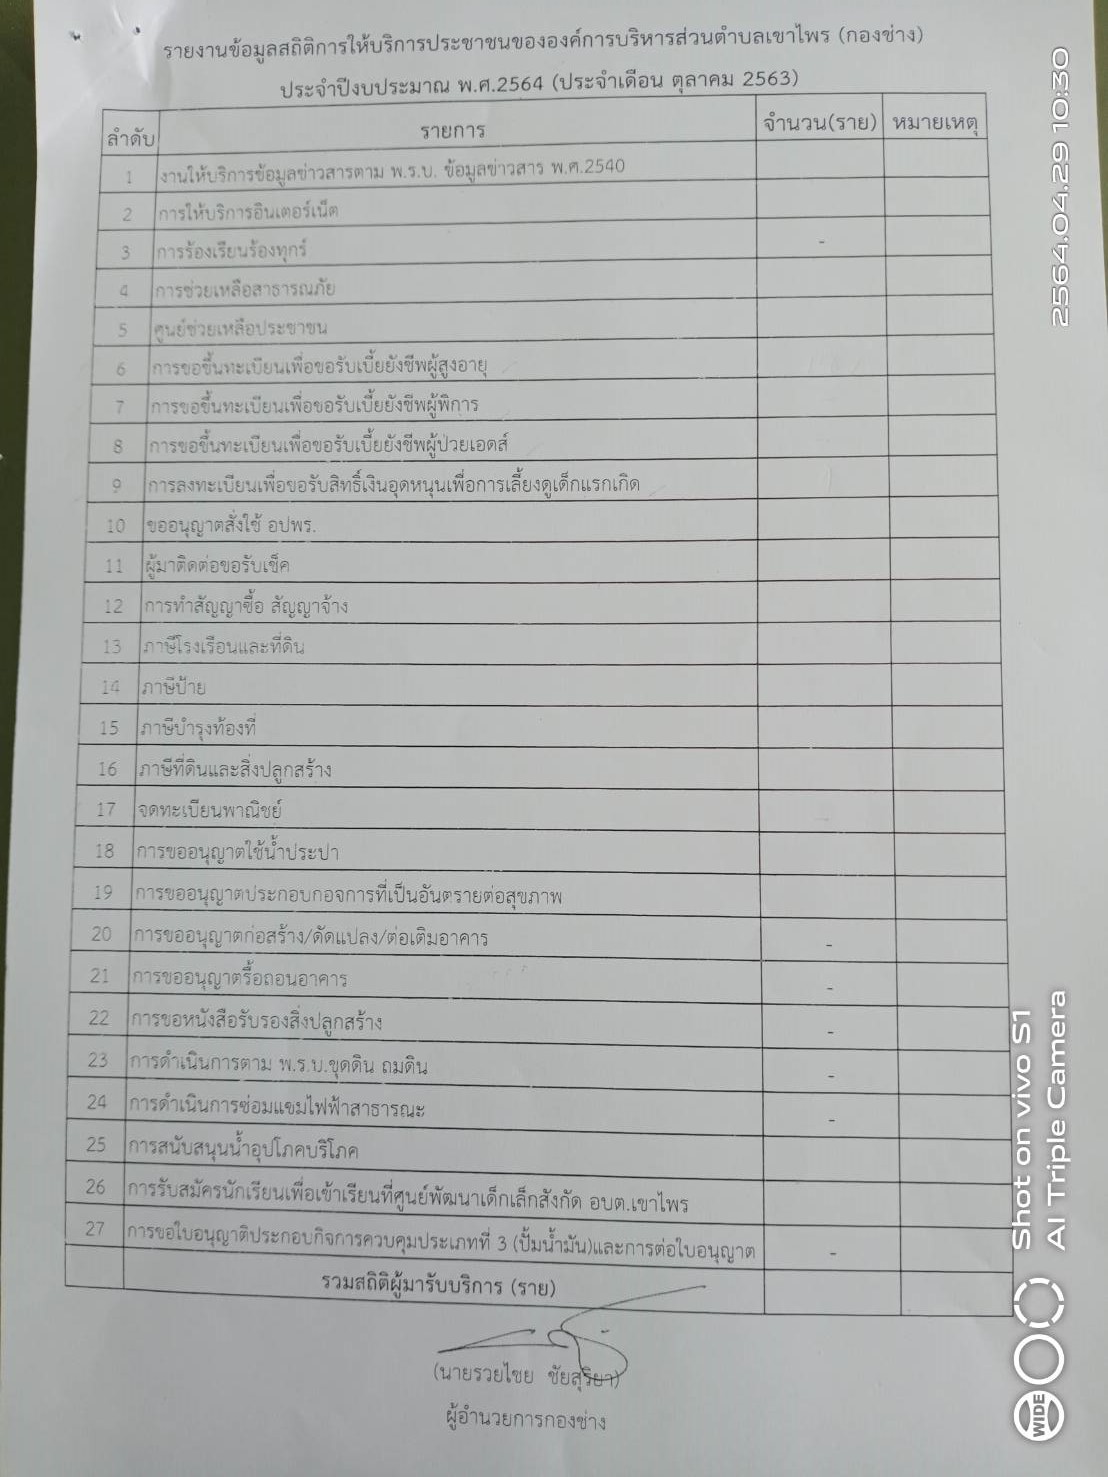 รายงานข้อมูลสถิติการให้บริการประชาชนขององค์การบริหารส่วนตำบลเขาไพร (กองช่าง)
ประจำปีงบประมาณ พ.ศ.2564 (ประจำเดือน ตุลาคม 2563)
ลำดับ รายการ จำนวน(ราย) หมายเหตุ
1 งานให้บริการข้อมูลข่าวสารตาม พ.ร.บ. ข้อมูลข่าวสาร พ.ศ.2540
2 การให้บริการอินเตอร์เน็ต
3 การร้องเรียนร้องทุกร์ -
4 การช่วยเหลือสาธารณภัย
5 ศูนย์ช่วยเหลือประชาชน
6 การขอขึ้นทะเบียนเพื่อขอรับเบี้ยยังชีพผู้สูงอายุ
7 การขอขึ้นทะเบียนเพื่อขอรับเบี้ยยังชีพผู้พิการ
8 การขอขึ้นทะเบียนเพื่อขอรับเบี้ยยังชีพผู้ป่วยเอดส์
9 การลงทะเบียนเพื่อขอรับสิทธิ์เงินอุดหนุนเพื่อการเลี้ยงดูเด็กแรกเกิด
10 ขออนุญาตสั่งใช้ อปพร.
11 ผู้มาติดต่อขอรับเช็ค
12 การทำสัญญาซื้อ สัญญาจ้าง
13 ภาษีโรงเรือนและที่ดิน
14 ภาษีป้าย
15 ภาษีบำรุงท้องที่
16 ภาษีที่ดินและสิ่งปลูกสร้าง
17 จดทะเบียนพาณิชย์
18 การขออนุญาตใช้น้ำประปา
19 การขออนุญาตประกอบกอจการที่เป็นอันตรายต่อสุขภาพ
20 การขออนุญาตก่อสร้าง/ดัดแปลง/ต่อเติมอาคาร -
21 การขออนุญาตรื้อถอนอาคาร -
22 การขอหนังสือรับรองสิ่งปลูกสร้าง -
23 การดำเนินการตาม พ.ร.บ.ขุดดิน ถมดิน -
24 การดำเนินการซ่อมแซมไฟฟ้าสาธารณะ -
25 การสนับสนุนน้ำอุปโภคบริโภค
26 การรับสมัครนักเรียนเพื่อเข้าเรียนที่ศูนย์พัฒนาเด็กเล็กสังกัด อบต.เขาไพร
27 การขอใบอนุญาติประกอบกิจการควบคุมประเภทที่ 3 (ปั้มน้ำมัน)และการต่อใบอนุญาต -
รวมสถิติผู้มารับบริการ (ราย)
(นายรวยไชย ชัยสุริยา)
ผู้อำนวยการกองช่าง
2564.04.29 10:30
Shot on vivo S1
AI Triple Camera
WIDE